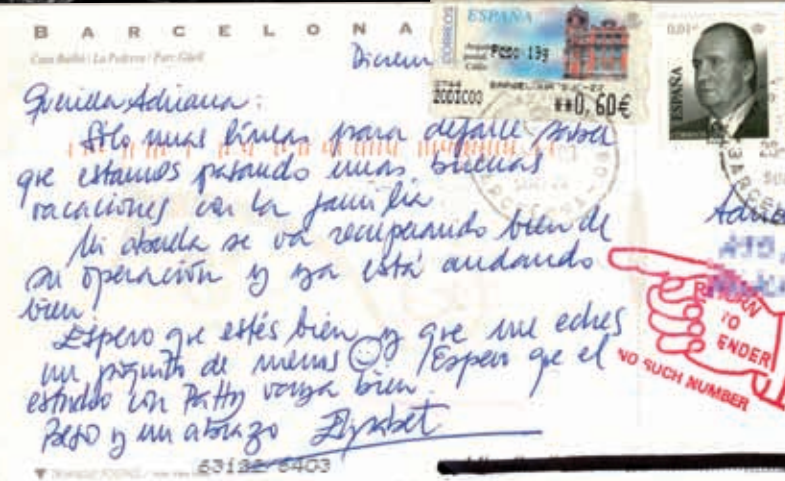 BARCELONA
Casa Batlló / La Pedrera / Parc Güell
Diciem
CORREOS
ESPAÑA
PESO 13g
**0,60€
0,01
ESPAÑA
Querida Adriana:
Sólo unas líneas para dejarte saber
que estamos pasando unas buenas
vacaciones con la familia
Mi abuela se va recuperando bien de
su operación y ya está andando
bien.
Espero que estés bien y que me eches
un poquito de menos Espero que el
estudio con Patty vaya bien.
Beso y un abrazo Elysabet
RETURN
TO
ENDER
NO SUCH NUMBER
63122 6403